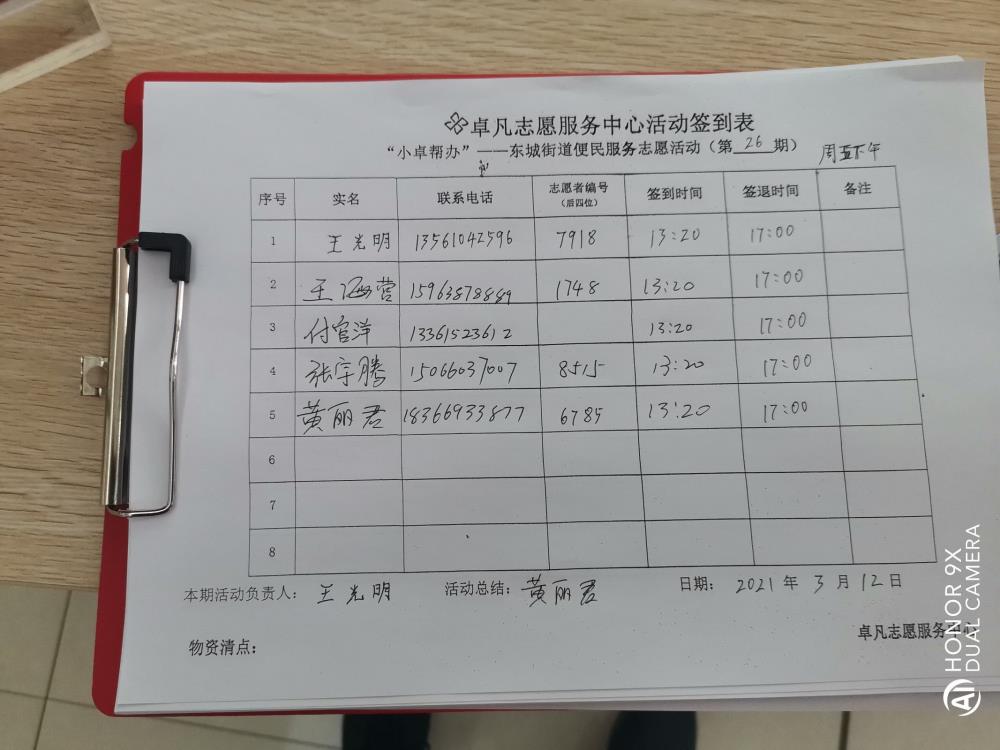 卓凡志愿服务中心活动签到表
“小卓帮办”——东城街道便民服务志愿活动（第 26 期）
周五下午
序号 实名 联系电话 志愿者编号（后四位） 签到时间 签退时间 备注
1 王光明 13561042596 7918 13:20 17:00
2 王海营 15963878889 1748 13:20 17:00
3 付官洋 13361523612 13:20 17:00
4 张宇腾 15066037007 8515 13:20 17:00
5 黄丽君 18366933877 6785 13:20 17:00
6
7
8
本期活动负责人： 王光明 活动总结： 黄丽君 日期： 2021 年 3 月 12 日
卓凡志愿服务中心
物资清点：
HONOR 9X
AI DUAL CAMERA